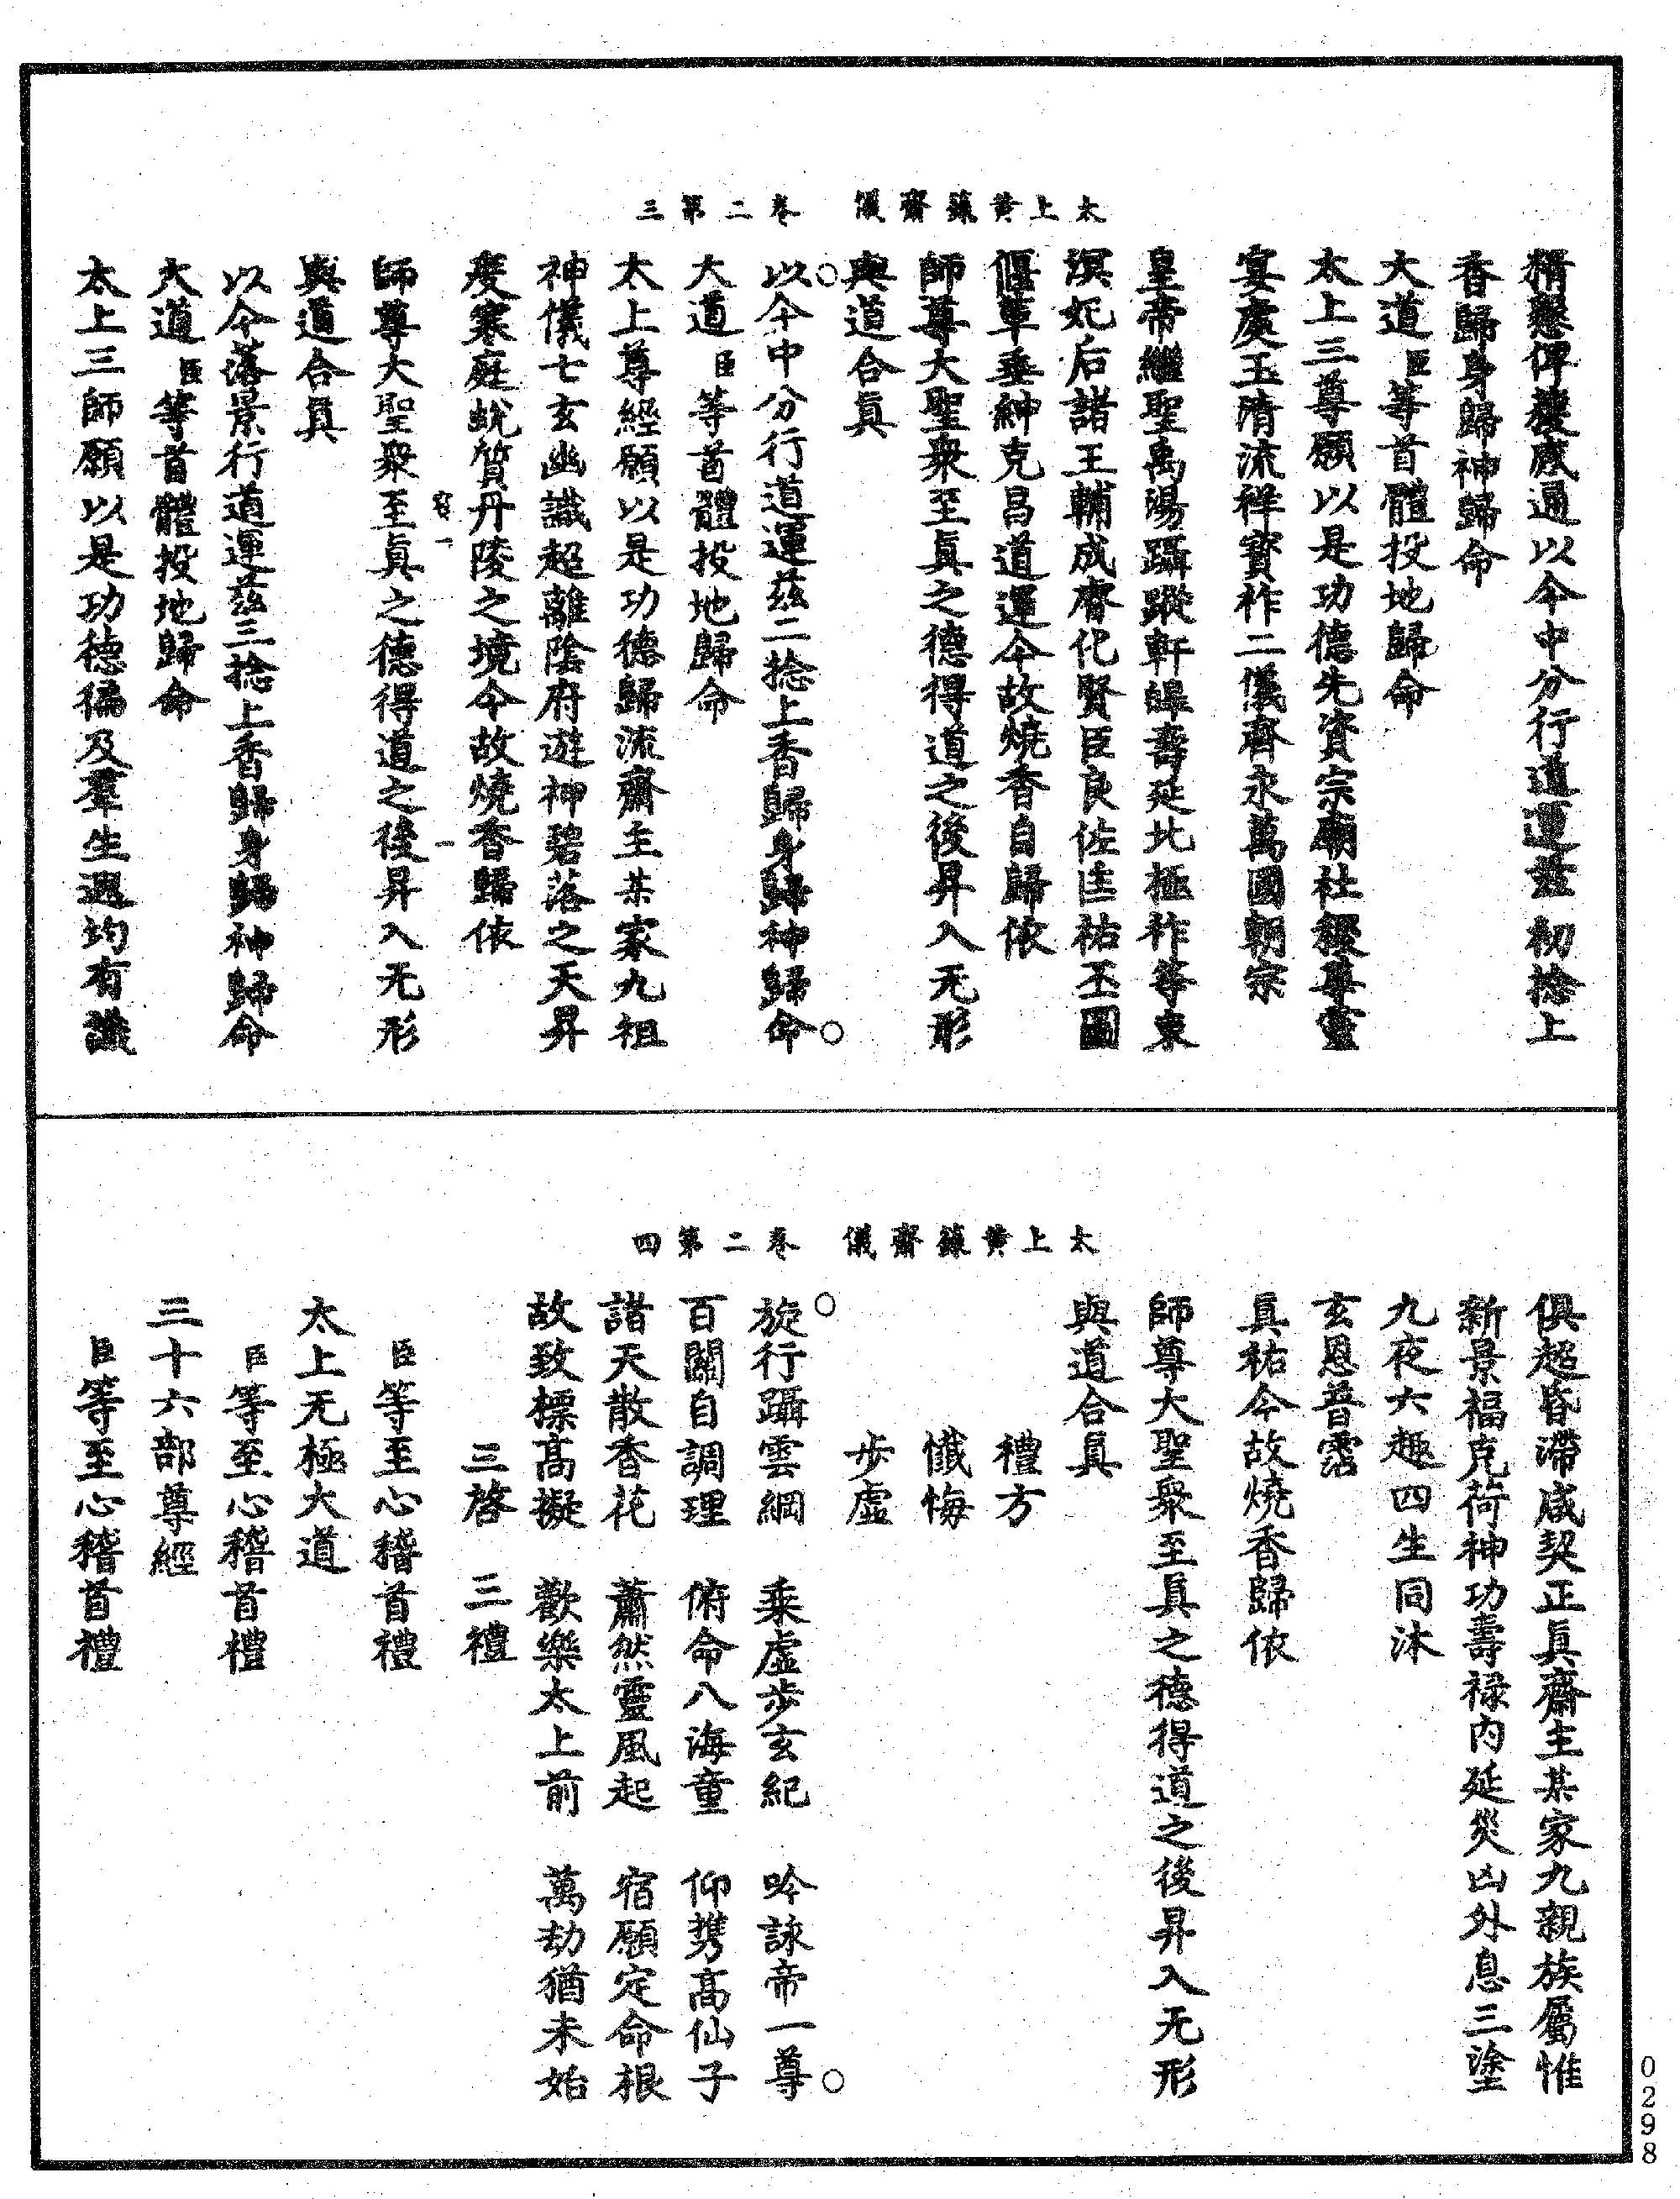 太上黃籙齋儀　卷二第三
精懇俾獲感通以今中分行道運茲初捻上
香歸身歸神歸命
大道臣等首體投地歸命
太上三尊願以是功德先資宗廟社稷尊靈
宴處玉清流祥寶祚二儀齊永萬國朝宗
皇帝繼聖禹湯躡蹤軒皥壽延北極祚等東
溟妃后諸王輔成睿化賢臣良佐匡祐丕圖
偃革垂紳克昌道運今故燒香自歸依
師尊大聖衆至真之德得道之後昇入无形
與道合真
以今中分行道運茲二捻上香歸身歸神歸命
大道臣等首體投地歸命
太上尊經願以是功德歸流齋主某家九祖
神儀七玄幽識超離陰府遊神碧落之天昇
度寒庭蛻質丹陵之境今故燒香歸依
師尊大聖衆至真之德得道之後昇入无形
與道合真
以今落景行道運茲三捻上香歸身歸神歸命
大道臣等首體投地歸命
太上三師願以是功德徧及羣生遐均有識
太上黃籙齋儀　卷二第四
俱超昏滯咸契正真齋主某家九親族屬惟
新景福克荷神功壽禄内延災凶外息三塗
九夜六趣四生同沐
玄恩普霑
真祐今故燒香歸依
師尊大聖衆至真之德得道之後昇入无形
與道合真
禮方
懺悔
步虛
旋行躡雲綱　乘虛步玄紀　吟詠帝一尊
百關自調理　俯命八海童　仰携高仙子
諸天散香花　蕭然靈風起　宿願定命根
故致標高擬　歡樂太上前　萬劫猶未始
三啓　三禮
臣等至心稽首禮
太上无極大道
臣等至心稽首禮
三十六部尊經
臣等至心稽首禮
0298